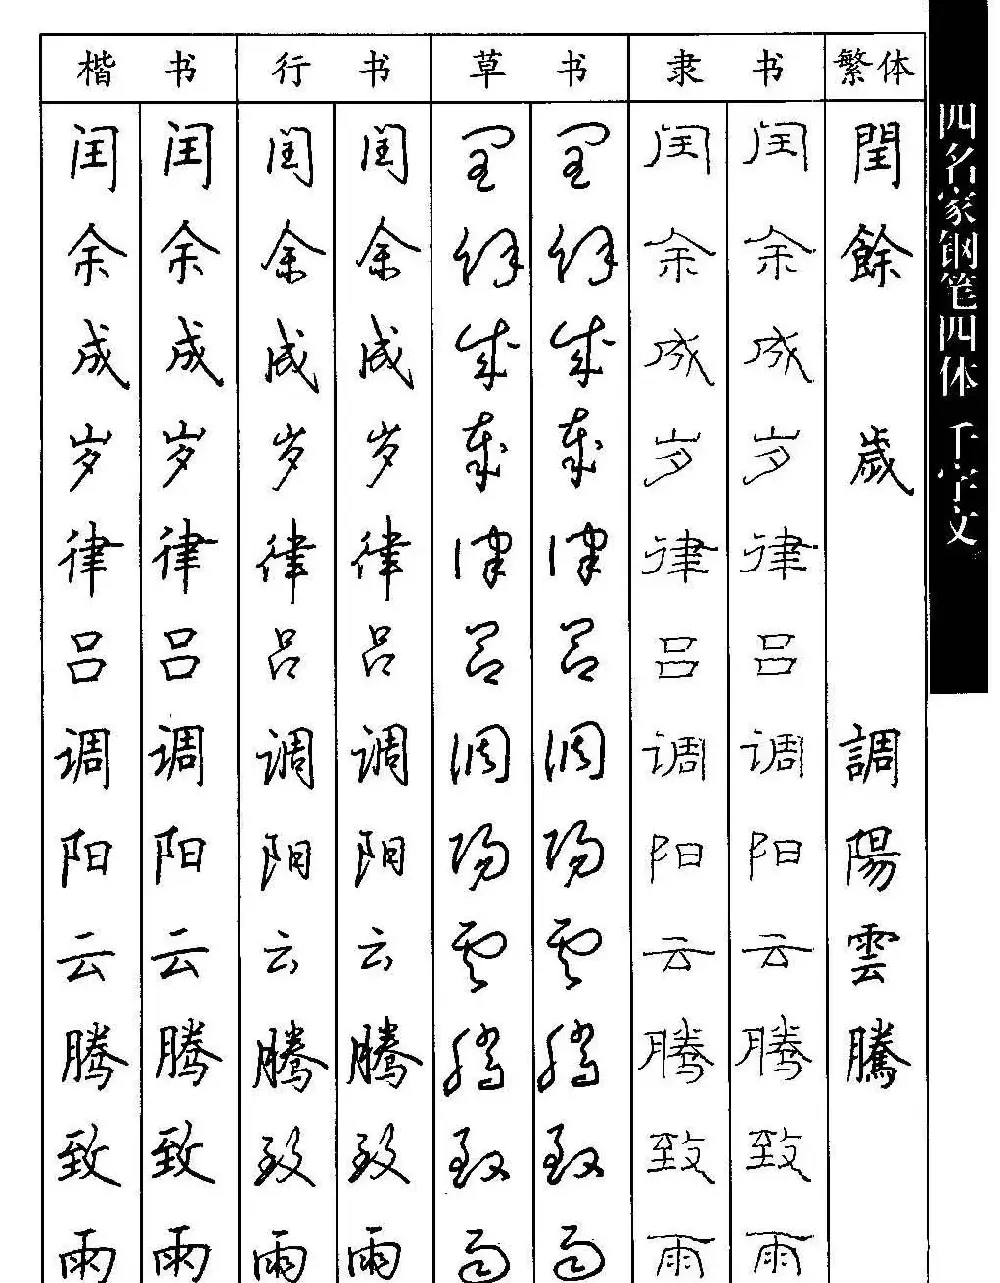 楷书 行书 草书 隶书 繁体
闰 闰 闰 闰 闰 闰 闰 闰 閏
余 余 余 余 余 余 余 余 餘
成 成 成 成 成 成 成 成
岁 岁 岁 岁 岁 岁 岁 岁 歲
律 律 律 律 律 律 律 律
吕 吕 吕 吕 吕 吕 吕 吕
调 调 调 调 调 调 调 调 調
阳 阳 阳 阳 阳 阳 阳 阳 陽
云 云 云 云 雲 雲 云 云 雲
腾 腾 腾 腾 腾 腾 腾 腾 騰
致 致 致 致 致 致 致 致
雨 雨 雨 雨 雨 雨 雨 雨
四名家钢笔四体 千字文